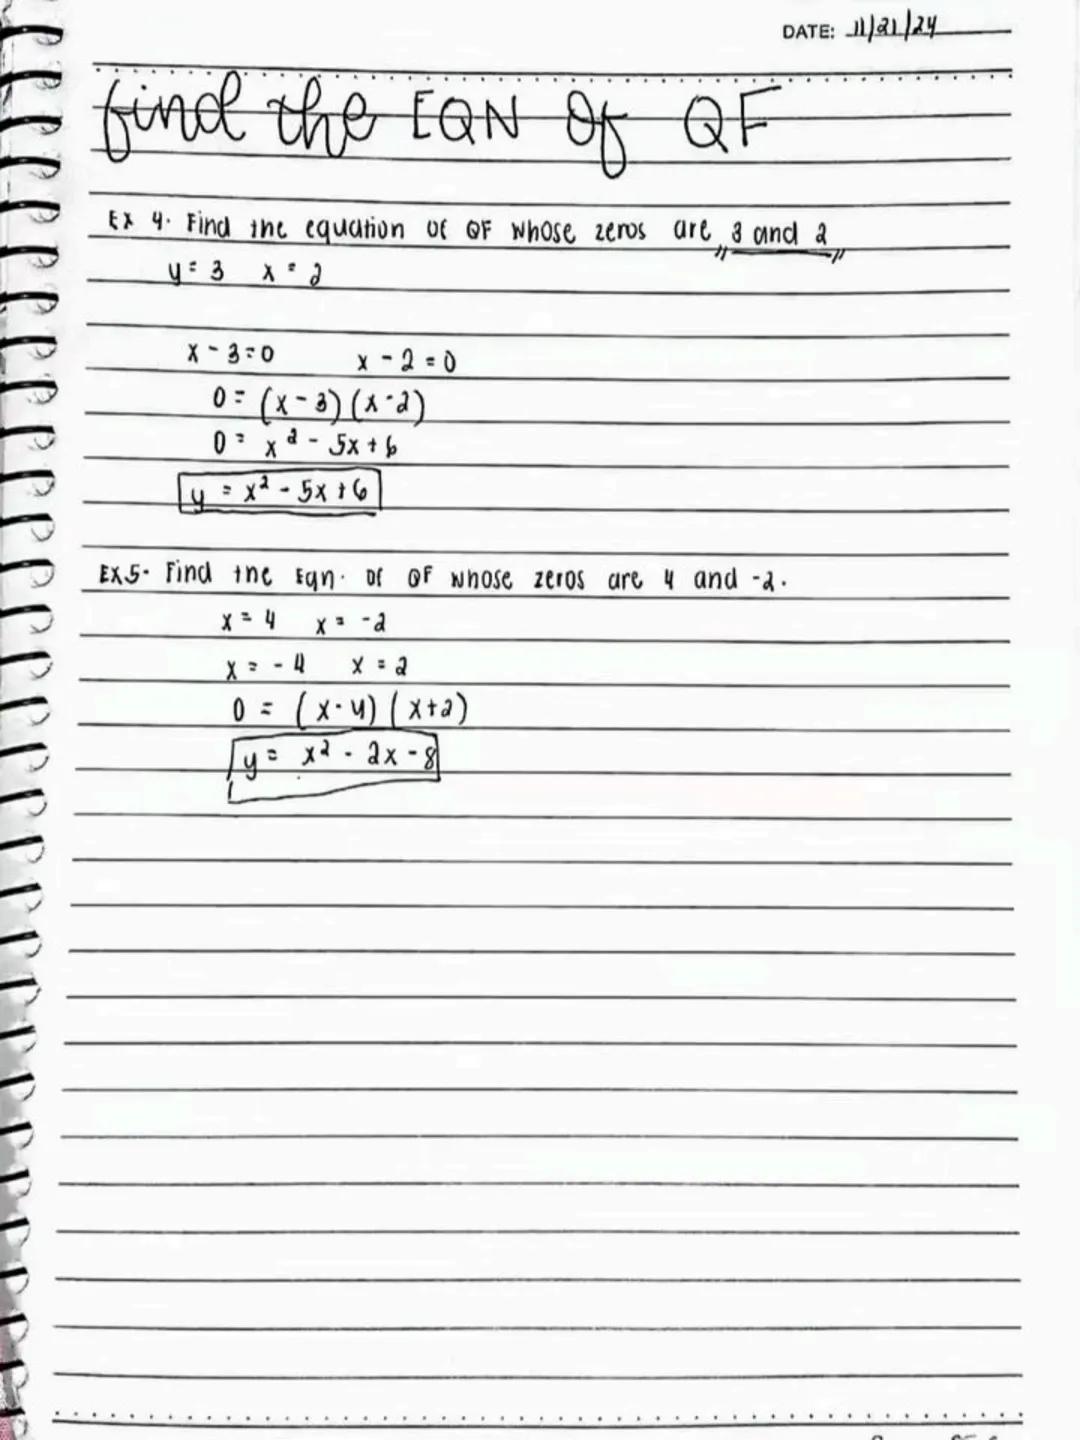 DATE: 11/21/24
find the EQN of QF
Ex 4. Find the equation of QF whose zeros are 3 and 2
y = 3 x = 2
x - 3 = 0 x - 2 = 0
0 = (x - 3) (x - 2)
0 = x² - 5x + 6
y = x² - 5x + 6
EX.5. Find the Eqn. of QF whose zeros are 4 and -2.
x = 4 x = -2
x = - 4 x = 2
0 = (x - 4) (x+2)
y = x² - 2x - 8